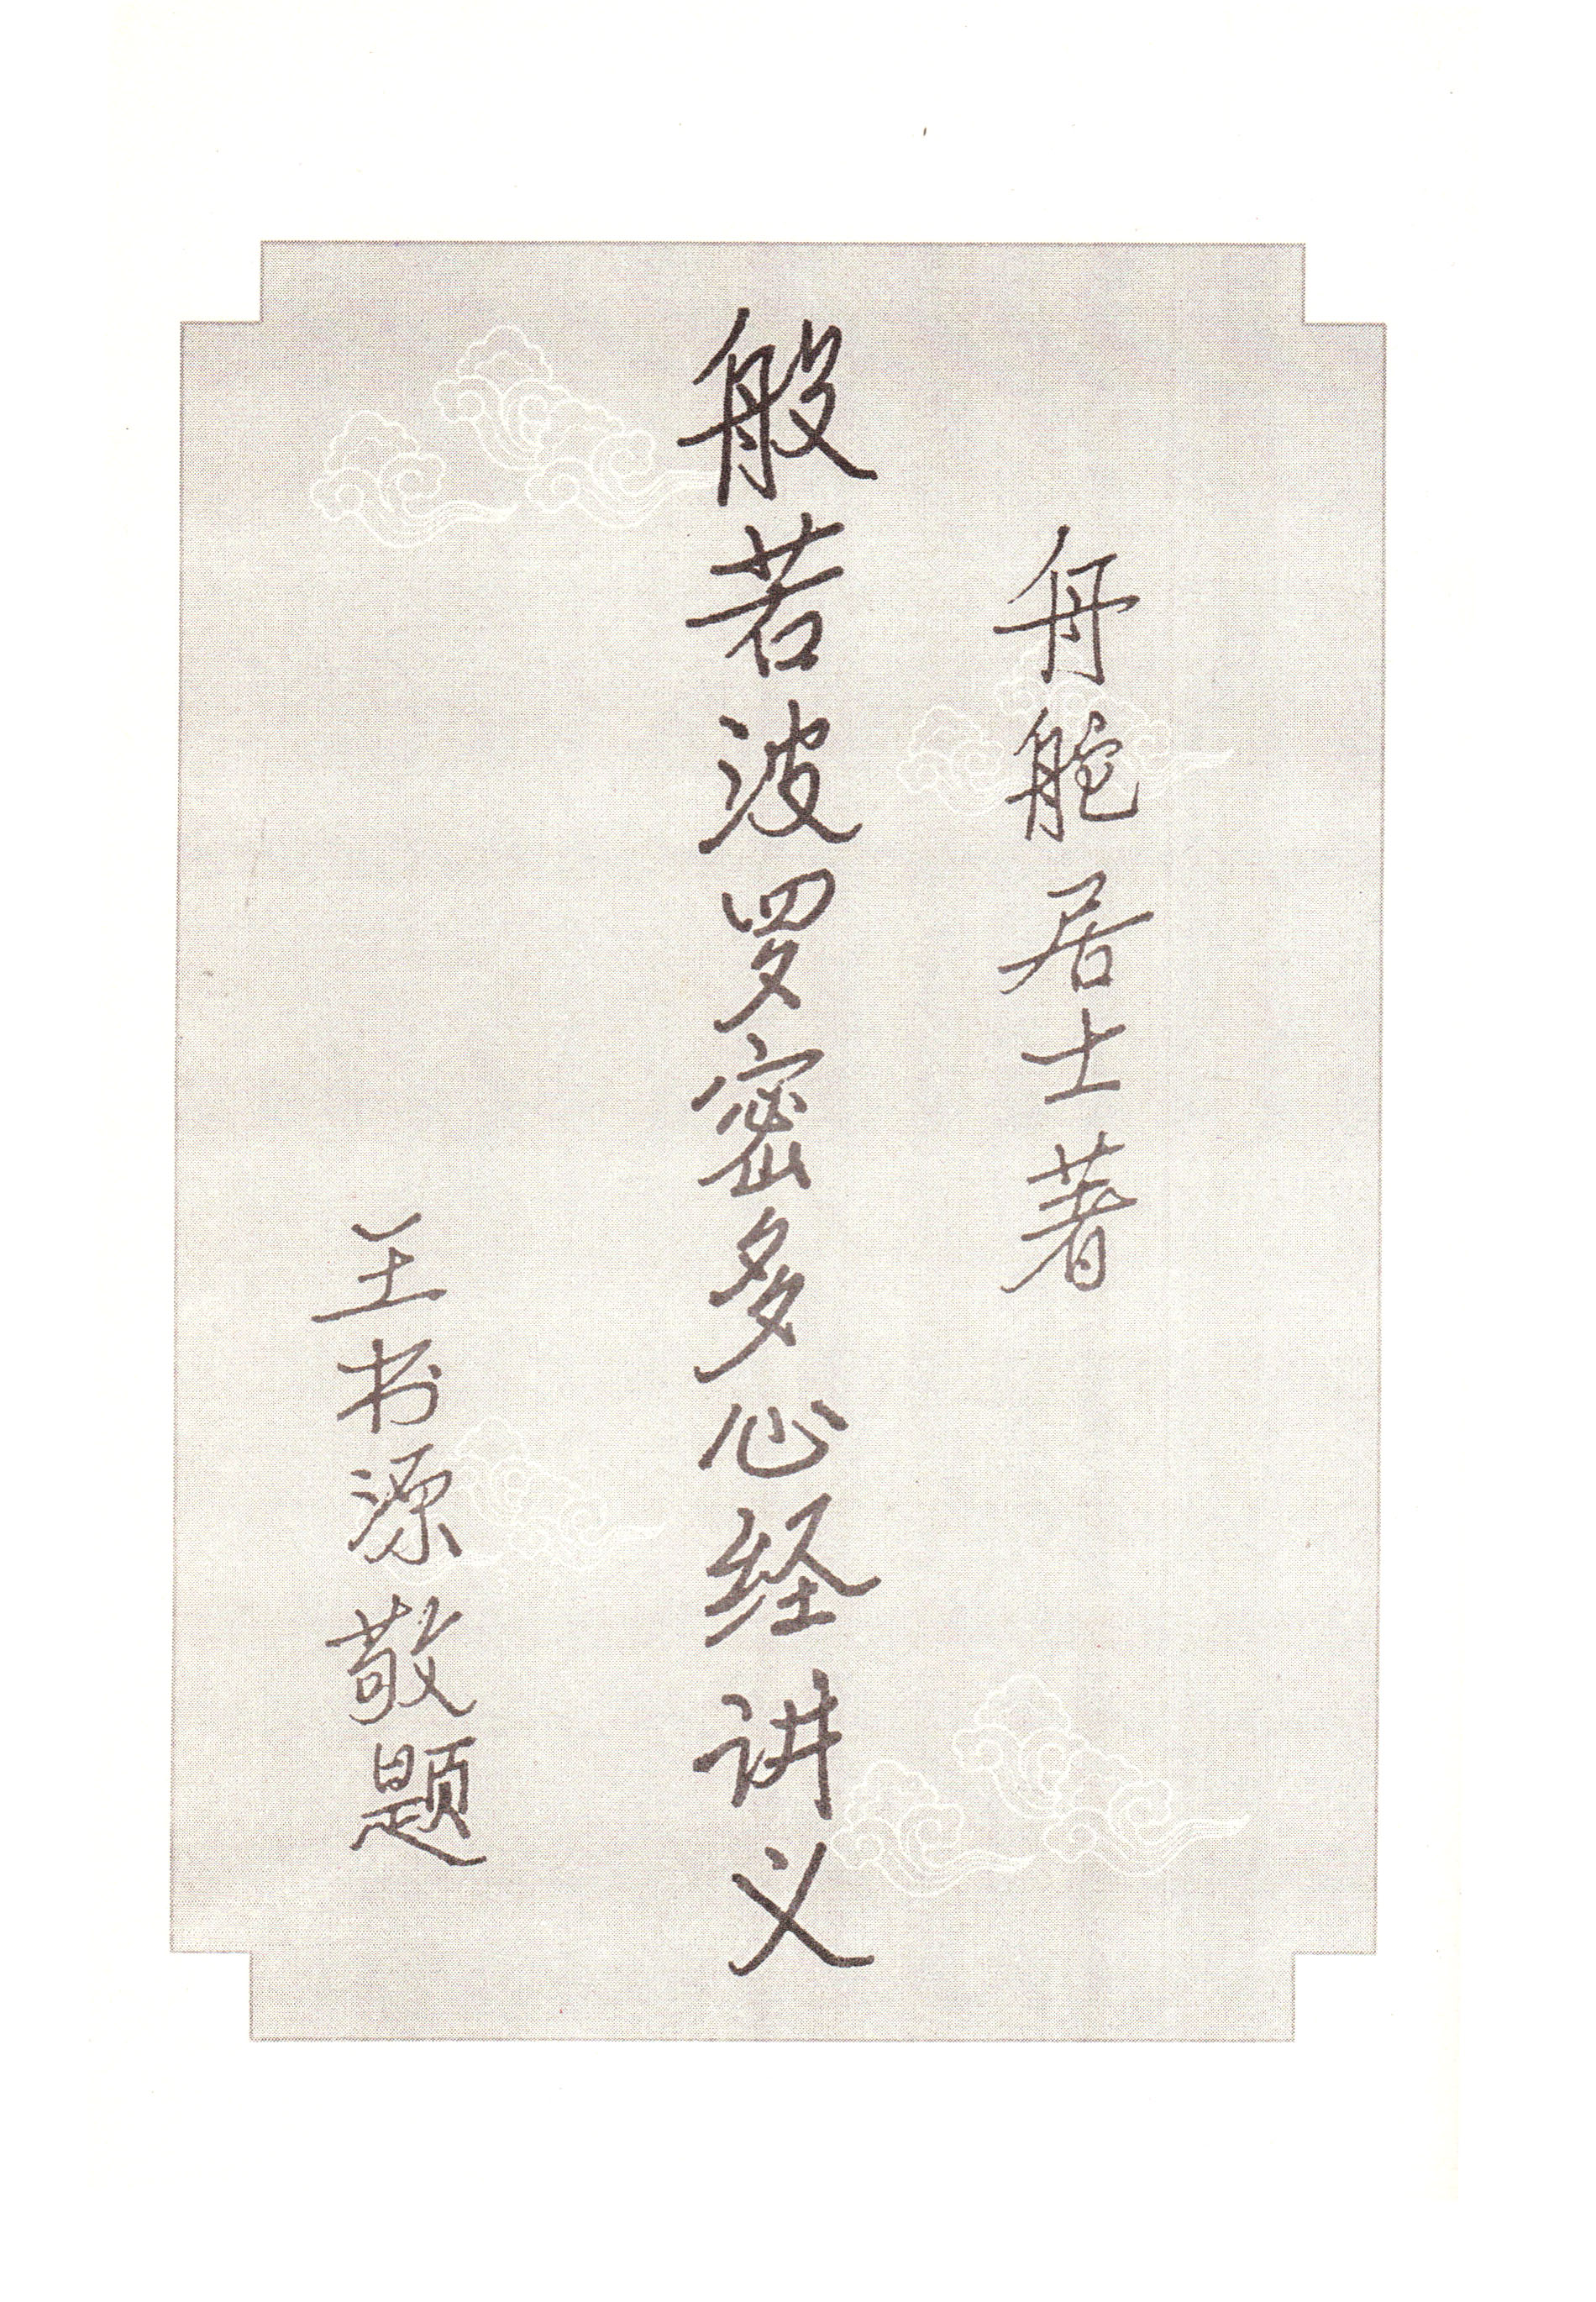 舟舵居士著
般若波罗密多心经讲义
王书源敬题